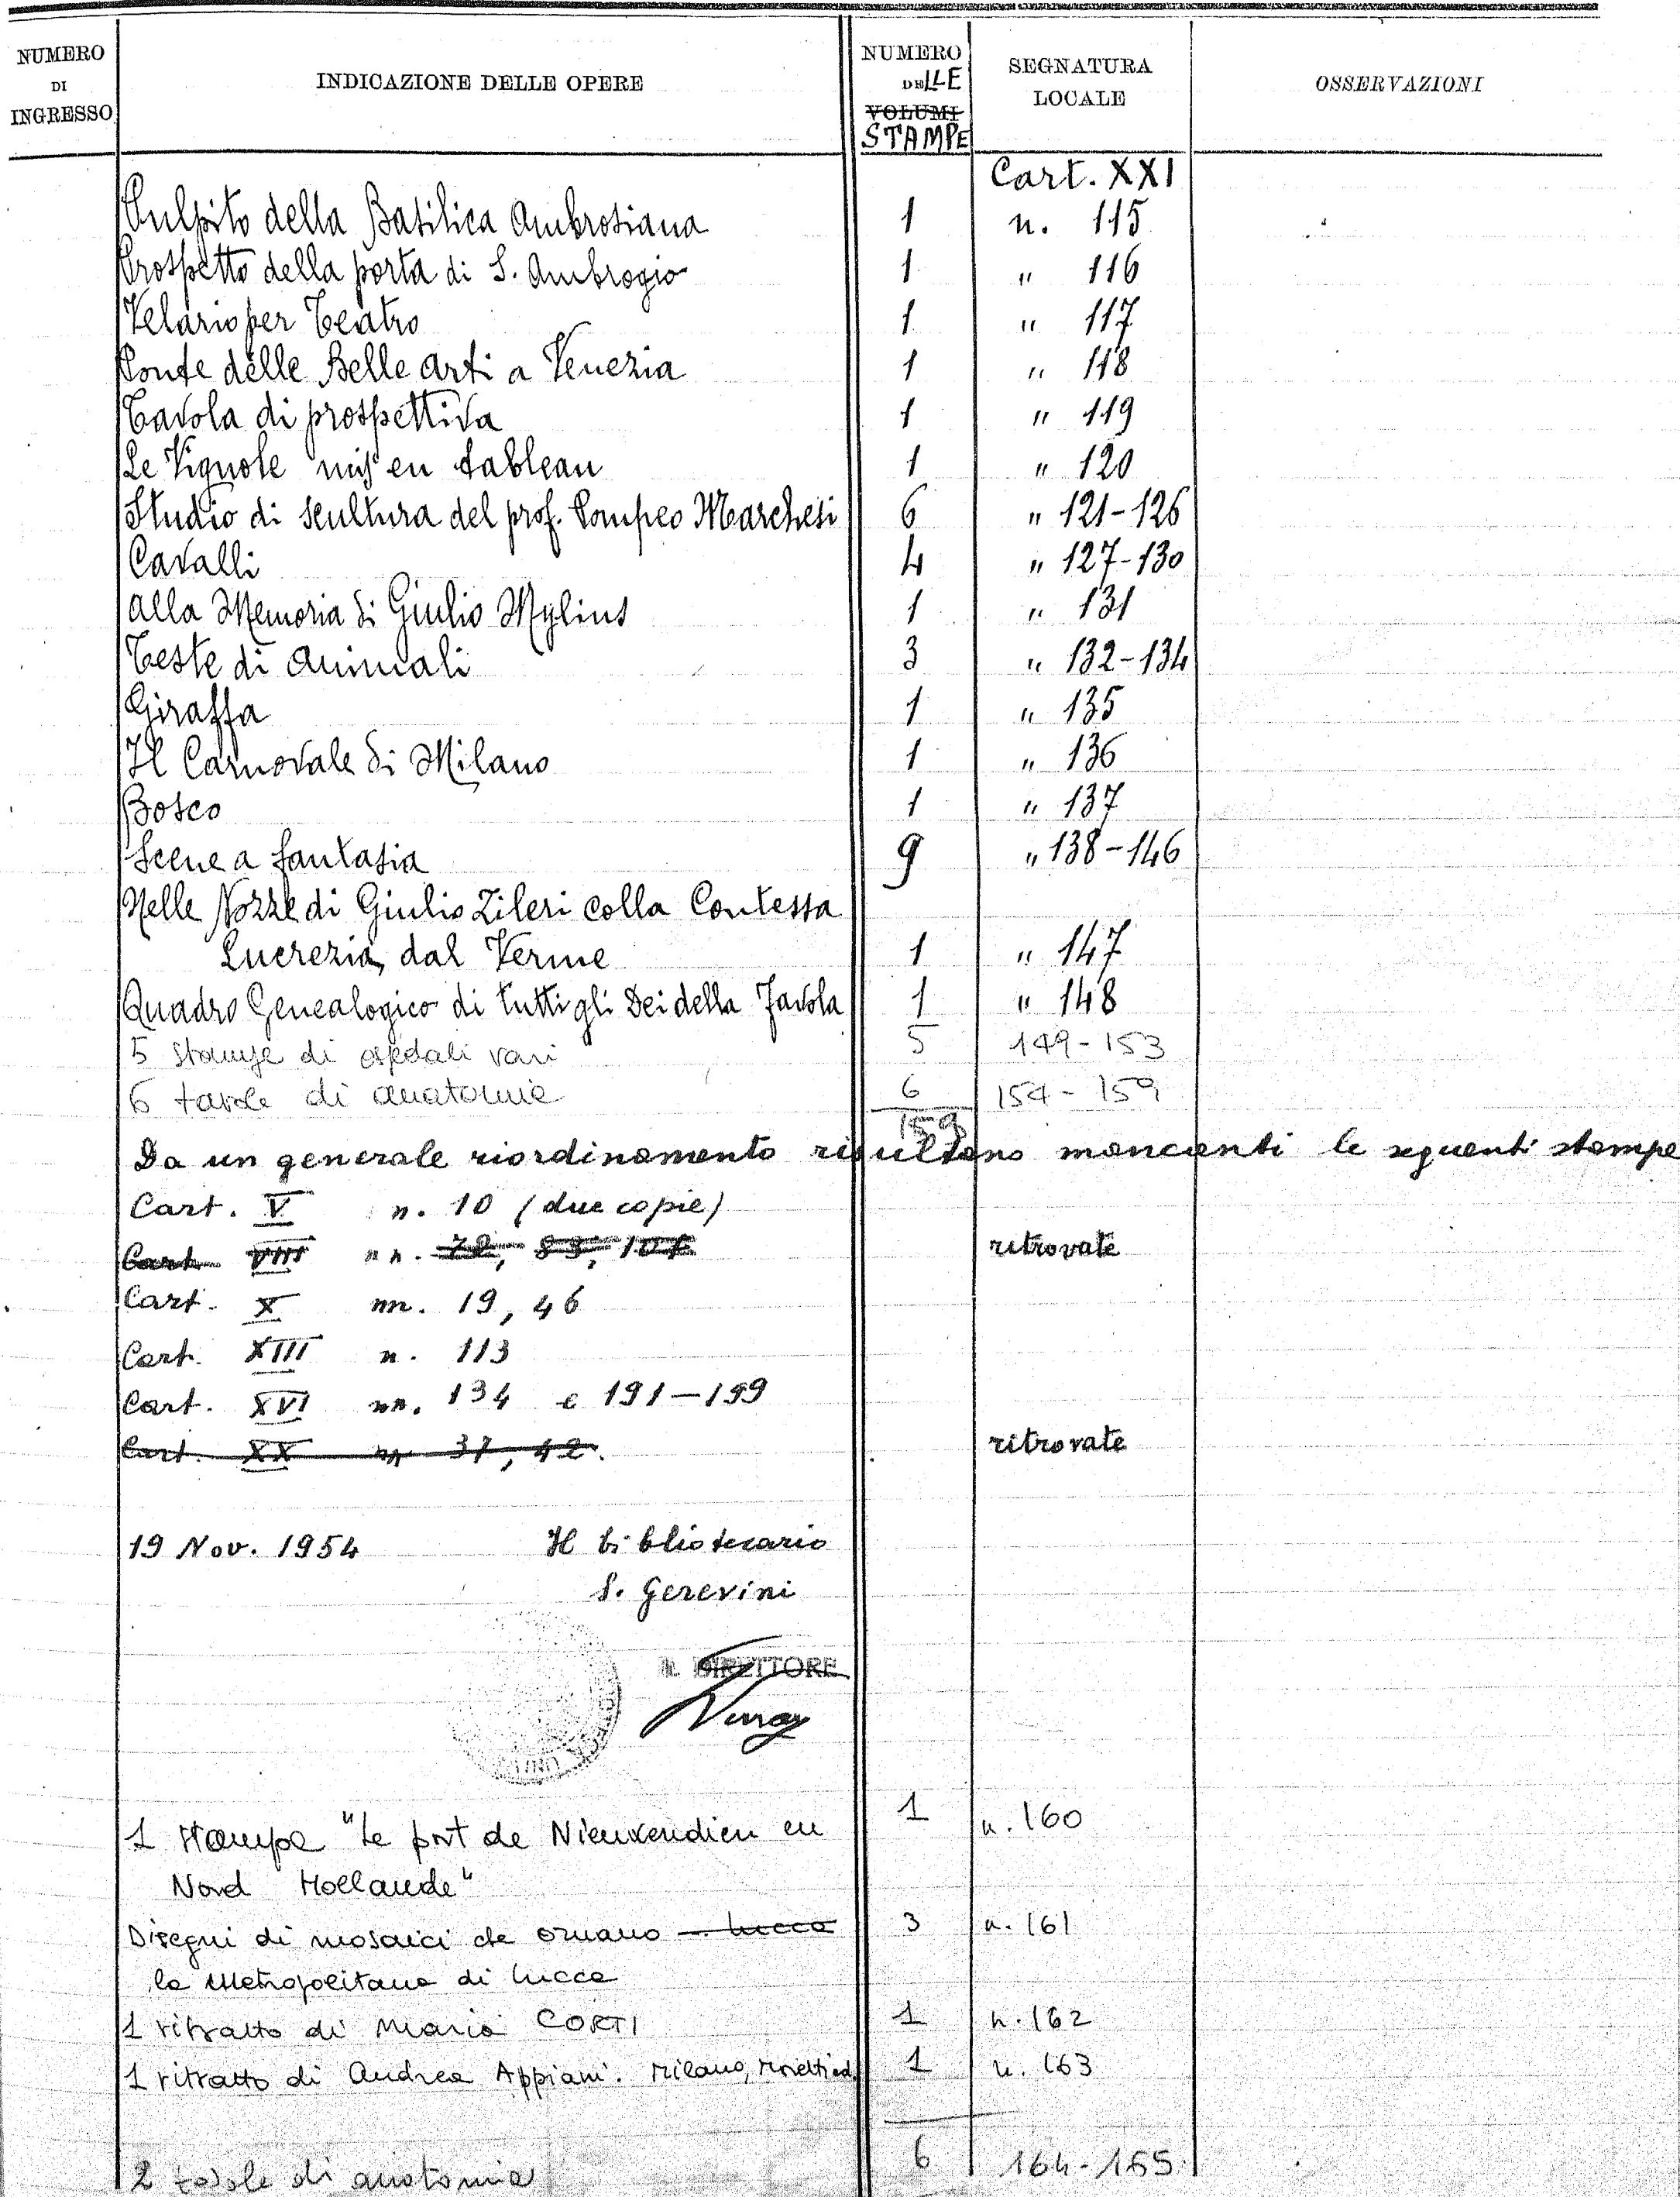 NUMERO DI INGRESSO INDICAZIONE DELLE OPERE NUMERO DELLE VOLUMI STAMPE SEGNATURA LOCALE OSSERVAZIONI
Cart. XXI
Pulpito della Basilica Ambrosiana 1 n. 115
Prospetto della porta di S. Ambrogio 1 " 116
Velario per Teatro 1 " 117
Ponte delle Belle Arti a Venezia 1 " 118
Tavola di prospettiva 1 " 119
Le Vignole mis en tableau 1 " 120
Studio di scultura del prof. Pompeo Marchesi 6 " 121-126
Cavalli 4 " 127-130
Alla Memoria di Giulio Mylius 1 " 131
Teste di Animali 3 " 132-134
Giraffa 1 " 135
Il Carnovale di Milano 1 " 136
Bosco 1 " 137
Scene a fantasia 9 " 138-146
Nelle Nozze di Giulio Zileri colla Contessa
Lucrezia dal Verme 1 " 147
Quadro Genealogico di tutti gli Dei della Favola 1 " 148
5 stampe di ospedali vari 5 149-153
6 tavole di anatomia 6 154-159
159
Da un generale riordinamento risultano mancanti le seguenti stampe
Cart. V n. 10 (due copie)
Cart. VIII nn. 72, 83, 101 ritrovate
Cart. X nn. 19, 46
Cart. XIII n. 113
Cart. XVI nn. 134 e 191-199
Cart. XX nn 37, 42. ritrovate
19 Nov. 1954 Il bibliotecario
S. Gerevini
IL DIRETTORE
1 stampa "Le port de Nieuwendien en 1 n. 160
Nord Hollande"
Disegni di mosaici che ornano Lucca 3 n. 161
la Metropolitana di Lucca
1 ritratto di Maria CORTI 1 n. 162
1 ritratto di Andrea Appiani. Milano, ed. 1 n. 163
2 tavole di anatomia 6 164-165